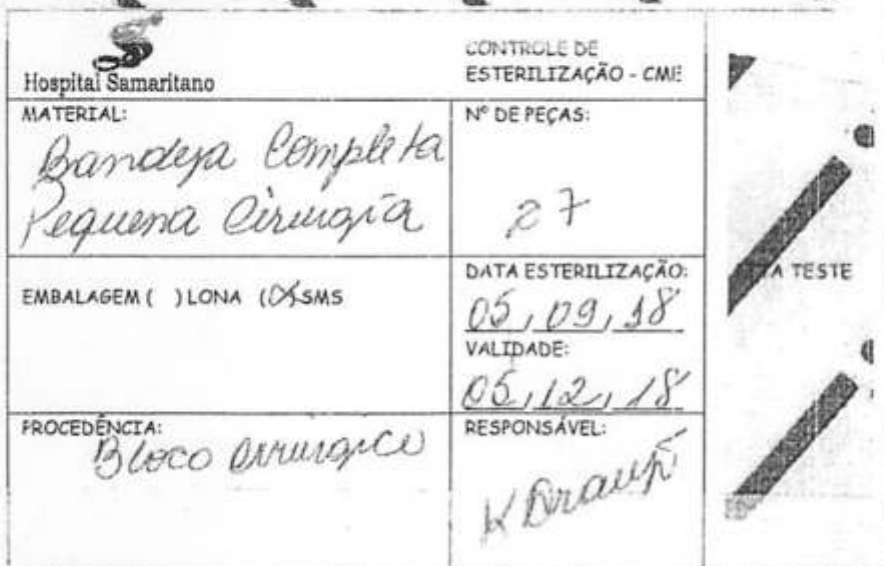 Hospital Samaritano
CONTROLE DE
ESTERILIZAÇÃO - CME
MATERIAL:
Bandeja Completa
Pequena Cirurgia
Nº DE PEÇAS:
27
EMBALAGEM ( ) LONA (X) SMS
DATA ESTERILIZAÇÃO:
05, 09, 18
VALIDADE:
05, 12, 18
TESTE
PROCEDÊNCIA:
Bloco Cirurgico
RESPONSÁVEL: